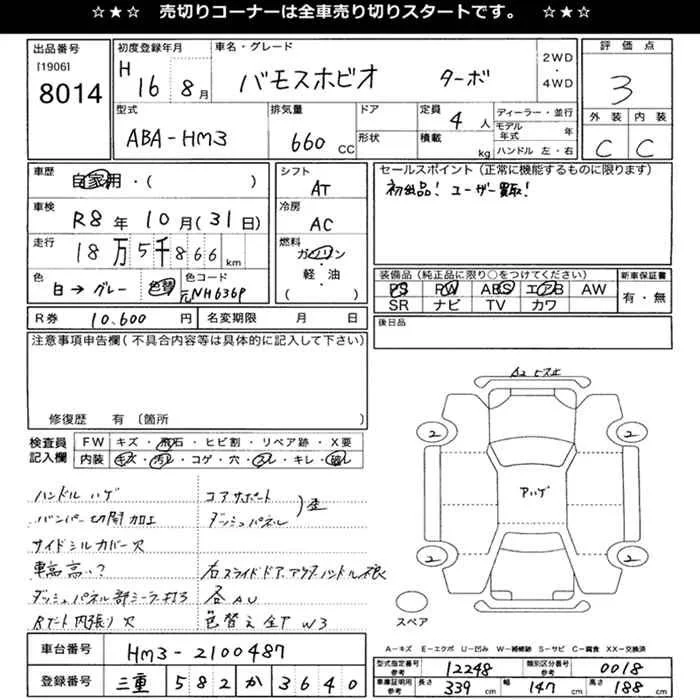 ☆★☆ 売切りコーナーは全車売り切りスタートです。 ☆★☆
出品番号
[1906]
8014
初度登録年月
H16年8月
車名・グレード
バモスホビオ ターボ
2WD
・
4WD
評価点
3
外装 内装
C C
型式
ABA-HM3
排気量
660 CC
ドア
形状
定員
4人
積載
kg
ディーラー・並行
モデル年式 年
ハンドル 左・右
車歴
自家用・( )
車検
R8年10月(31日)
走行
18万5千866km
色
白→グレー 色替
色コード
元NH636P
シフト
AT
冷房
AC
燃料
ガソリン
・
軽・油
( )
セールスポイント(正常に機能するものに限ります)
初出品! ユーザー買取!
装備品(純正品に限り○をつけてください)
PS PW ABS エアB AW
SR ナビ TV カワ
新車保証書
有・無
後日品
R券 10,600円
名変期限 月 日
注意事項申告欄(不具合内容等は具体的に記入して下さい)
修復歴 有〔箇所
検査員記入欄
FW キズ・飛石・ヒビ割・リペア跡・X要
内装 キズ・汚レ・コゲ・穴・スレ・キレ・破レ
ハンドル ハゲ
バンパー切開加工
サイドシルカバー欠
車高高い?
ダッシュパネル部シーラー
コアサポート
ダッシュパネル
歪
右スライドドア、アウターハンドル不良
各AU
色替え全P W3
A2
アハゲ
2
2
2
2
スペア
A-キズ E-エクボ U-凹み W-補修跡 S-サビ C-腐食 XX-交換済
車台番号
HM3-2100487
登録番号
三重 582 か 3640
型式指定番号 参考
12248
類別区分番号 参考
0018
車庫証明用 参考
長さ 339cm 幅 147cm 高さ 188cm